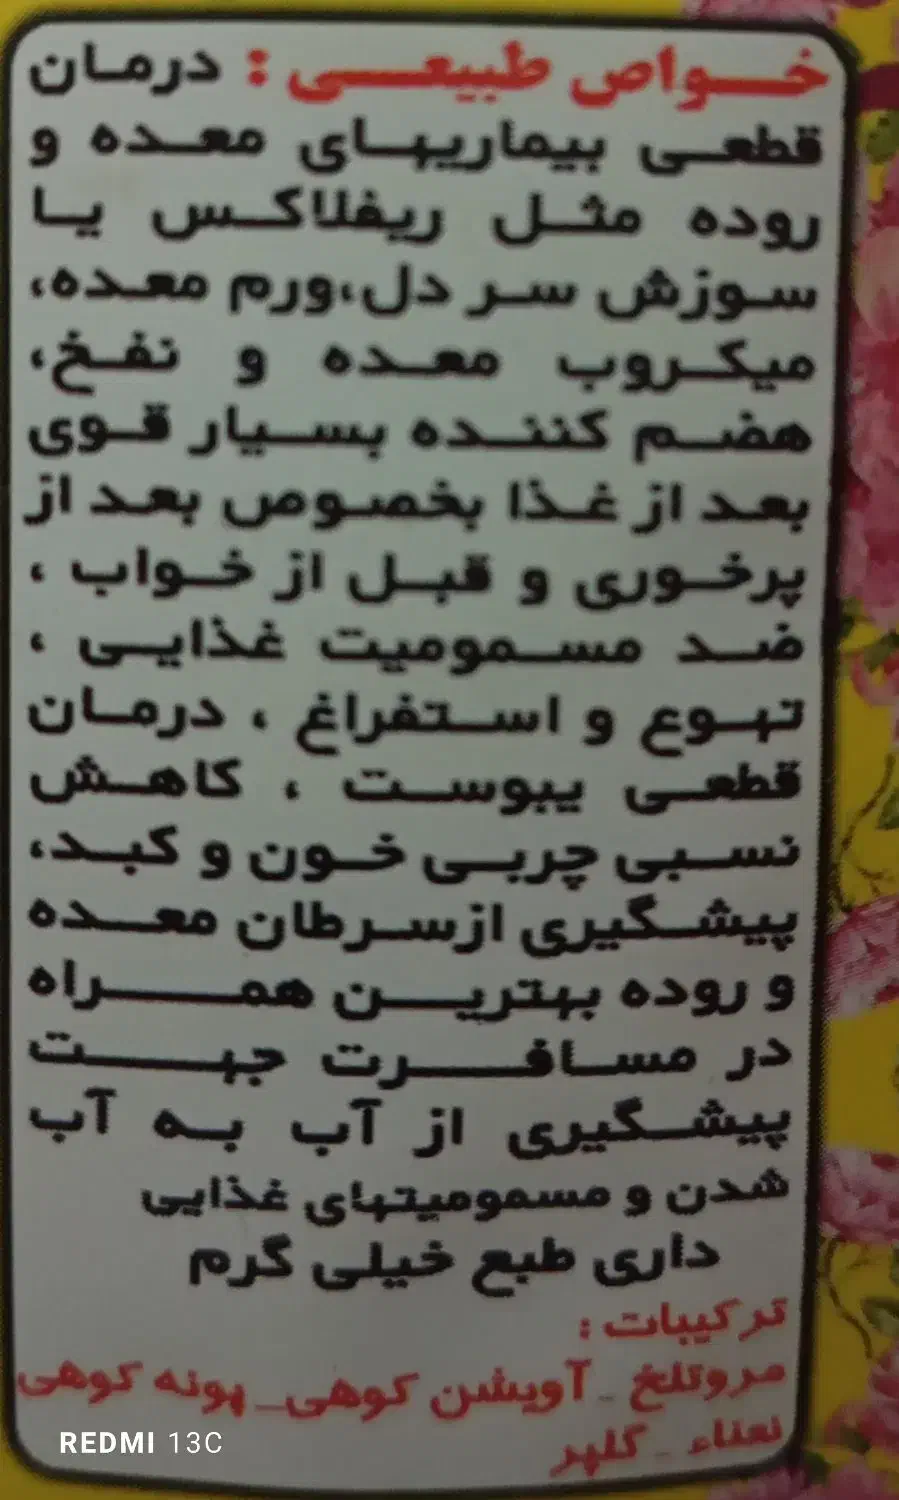 خواص طبیعی : درمان
قطعی بیماریهای معده و
روده مثل ریفلاکس یا
سوزش سر دل،ورم معده،
میکروب معده و نفخ،
هضم کننده بسیار قوی
بعد از غذا بخصوص بعد از
پرخوری و قبل از خواب ،
ضد مسمومیت غذایی ،
تهوع و استفراغ ، درمان
قطعی یبوست ، کاهش
نسبی چربی خون و کبد،
پیشگیری ازسرطان معده
و روده بهترین همراه
در مسافرت جهت
پیشگیری از آب به آب
شدن و مسمومیتهای غذایی
داری طبع خیلی گرم
ترکیبات :
مروتلخ _ آویشن کوهی_ پونه کوهی
نعناء _ کلپر
REDMI 13C